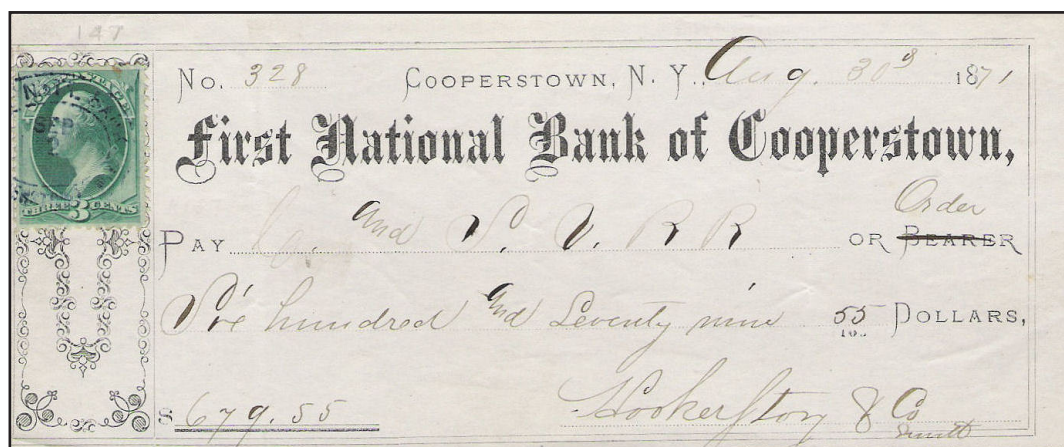 147
No. 328 COOPERSTOWN, N. Y., Aug. 30 1871
First National Bank of Cooperstown,
Order
PAY C. and S. V. R R OR BEARER
Six hundred and Seventy nine 55 DOLLARS,
$ 679.55 & Co
THREE 3 CENTS